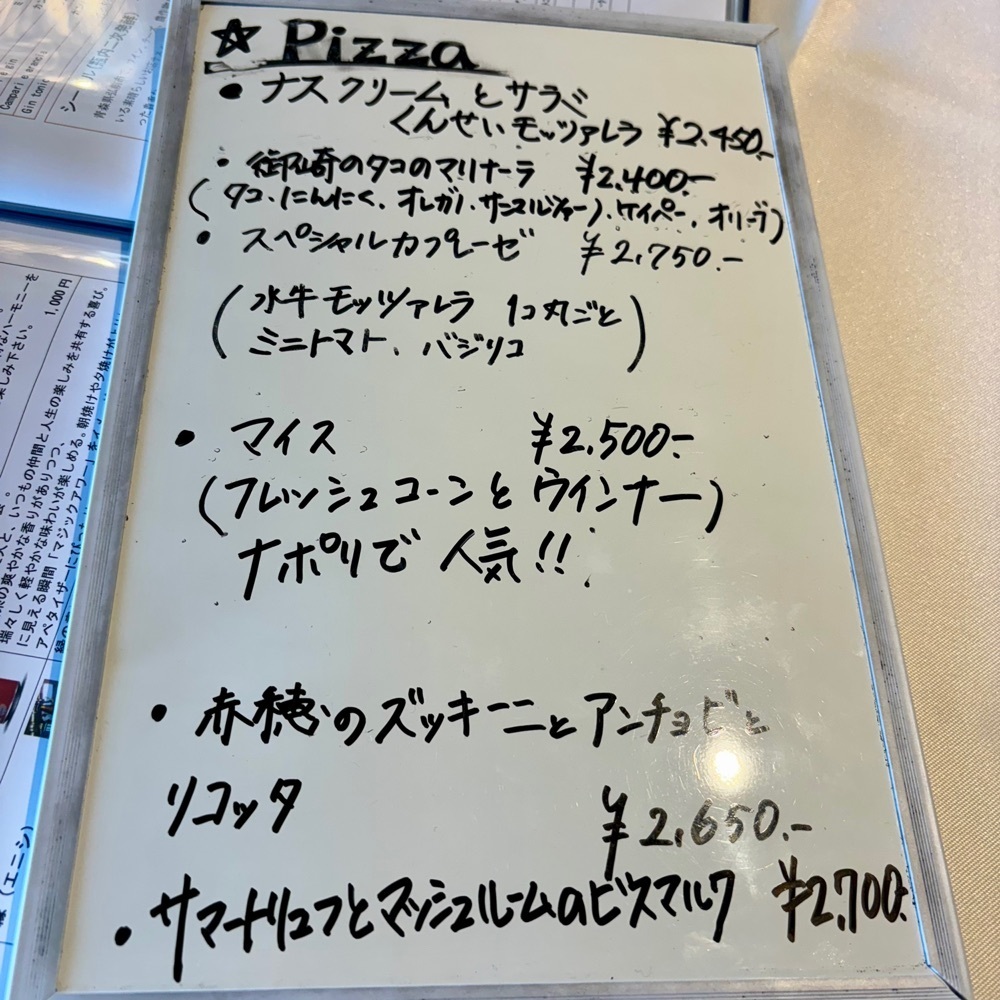 ☆ Pizza
・ナスクリームとサラミ
くんせいモッツァレラ ¥2.450.-
・御崎のタコのマリナーラ ¥2.400.-
(タコ、にんにく、オレガノ、サンマルツァーノ、ケイパー、オリーブ)
・スペシャルカプレーゼ ¥2,750.-
(水牛モッツァレラ 1コ丸ごと
ミニトマト、バジリコ)
・マイス ¥2.500.-
(フレッシュコーンとウインナー)
ナポリで人気!!
・赤穂のズッキーニとアンチョビと
リコッタ ¥2,650.-
・サマートリュフとマッシュルームのビスマルク ¥2,700.-
Campari e arance
Gin tonic
1,000円
楽しみ下さい。
いつもの仲間と人生の楽しみを共有する喜び。
の爽やかな香りがありつつ、
瑞々しく軽やかな味わいが楽しめる。朝焼けや夕焼けが
に見える瞬間「マジックアワー」を
アペタイザーに
(エニシ)